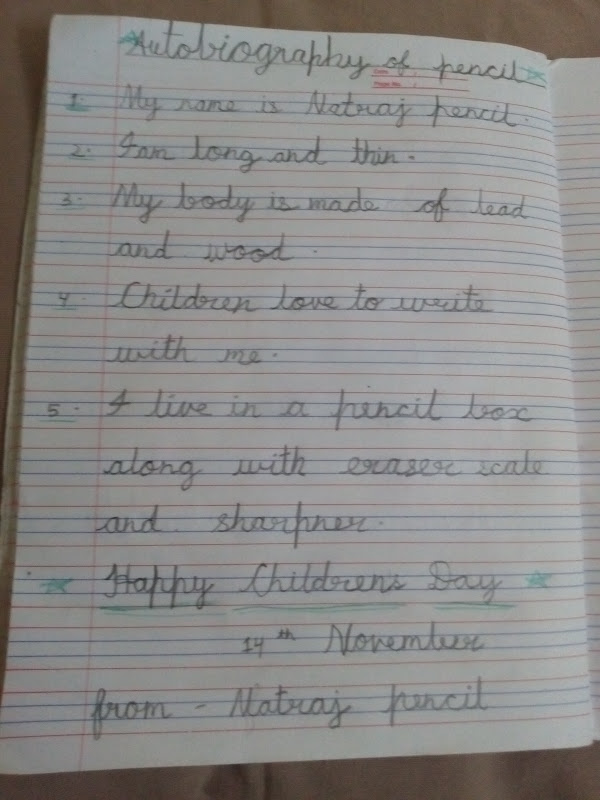 Autobiography of pencil
1. My name is Natraj pencil.
2. I am long and thin.
3. My body is made of lead
and wood.
4. Children love to write
with me.
5. I live in a pencil box
along with eraser scale
and sharpner.
Happy Childrens Day
14th November
from - Natraj pencil